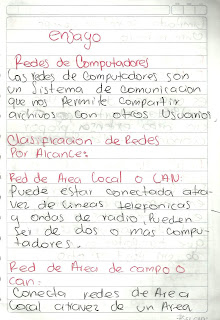 ensayo
Redes de Computadores
Las redes de Computadores son
un Sistema de comunicacion
que nos Permite compartir
archivos con otros Usuarios.
Clasificacion de Redes
Por Alcance:
Red de Area Local o LAN:
Puede estar conectada atra
vez de Lineas telefonicas
y ondas de radio. Pueden
Ser de dos o mas compu-
tadores.
Red de Area de campo o
Can:
Conecta redes de Area
Local atravez de un Area